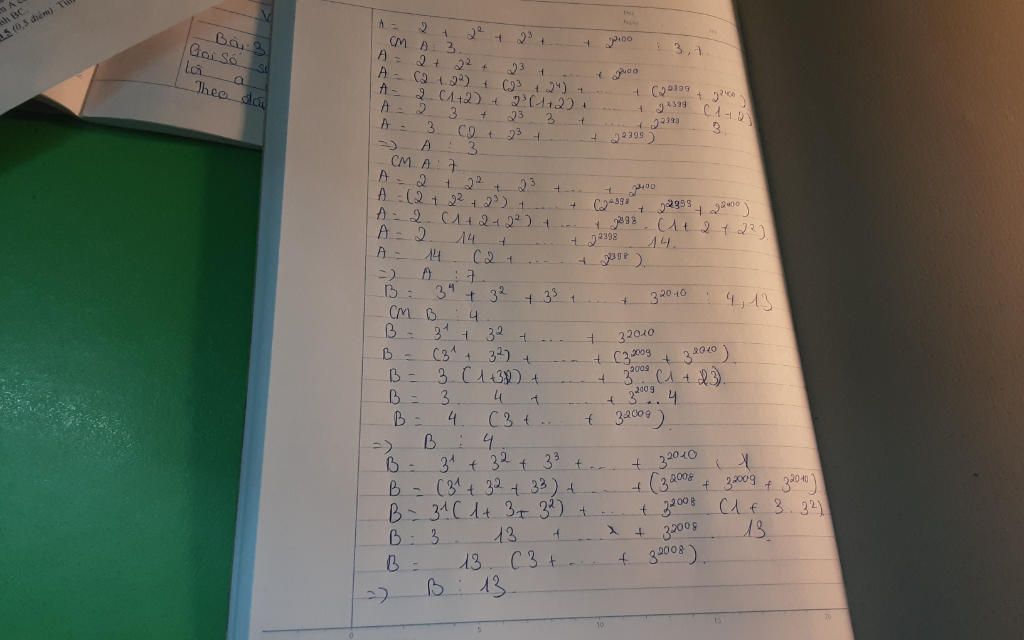 Bài 3
Gọi số
là a
Theo
A = 2 + 2² + 2³ + ... + 2²⁴⁰⁰ ⋮ 3, 7.
CM A ⋮ 3.
A = 2 + 2² + 2³ + ... + 2²⁴⁰⁰
A = (2 + 2²) + (2³ + 2⁴) + ... + (2²³⁹⁹ + 2²⁴⁰⁰)
A = 2 (1+2) + 2³(1+2) + ... + 2²³⁹⁹ (1+2)
A = 2 3 + 2³ 3 + ... + 2²³⁹⁹ 3.
A = 3 (2 + 2³ + ... + 2²³⁹⁹)
=> A ⋮ 3
CM A ⋮ 7
A = 2 + 2² + 2³ + ... + 2²⁴⁰⁰
A = (2 + 2² + 2³) + ... + (2²³⁹⁸ + 2²³⁹⁹ + 2²⁴⁰⁰)
A = 2 (1 + 2 + 2²) + ... + 2²³⁹⁸ . (1 + 2 + 2²)
A = 2. 14 + ... + 2²³⁹⁸ 14.
A = 14. (2 + ... + 2²³⁹⁸).
=> A ⋮ 7.
B = 3¹ + 3² + 3³ + ... + 3²⁰¹⁰ ⋮ 4, 13
CM B ⋮ 4.
B = 3¹ + 3² + ... + 3²⁰¹⁰
B = (3¹ + 3²) + ... + (3²⁰⁰⁹ + 3²⁰¹⁰).
B = 3. (1+3) + ... + 3²⁰⁰⁹. (1 + 3).
B = 3. 4 + ... + 3²⁰⁰⁹ . 4
B = 4. (3 + ... + 3²⁰⁰⁹).
=> B ⋮ 4.
B = 3¹ + 3² + 3³ + ... + 3²⁰¹⁰
B = (3¹ + 3² + 3³) + ... + (3²⁰⁰⁸ + 3²⁰⁰⁹ + 3²⁰¹⁰)
B = 3¹(1 + 3 + 3²) + ... + 3²⁰⁰⁸ (1 + 3. 3²).
B = 3. 13 + ... + 3²⁰⁰⁸ 13.
B = 13. (3 + ... + 3²⁰⁰⁸).
=> B ⋮ 13.
0 5 10 15 20